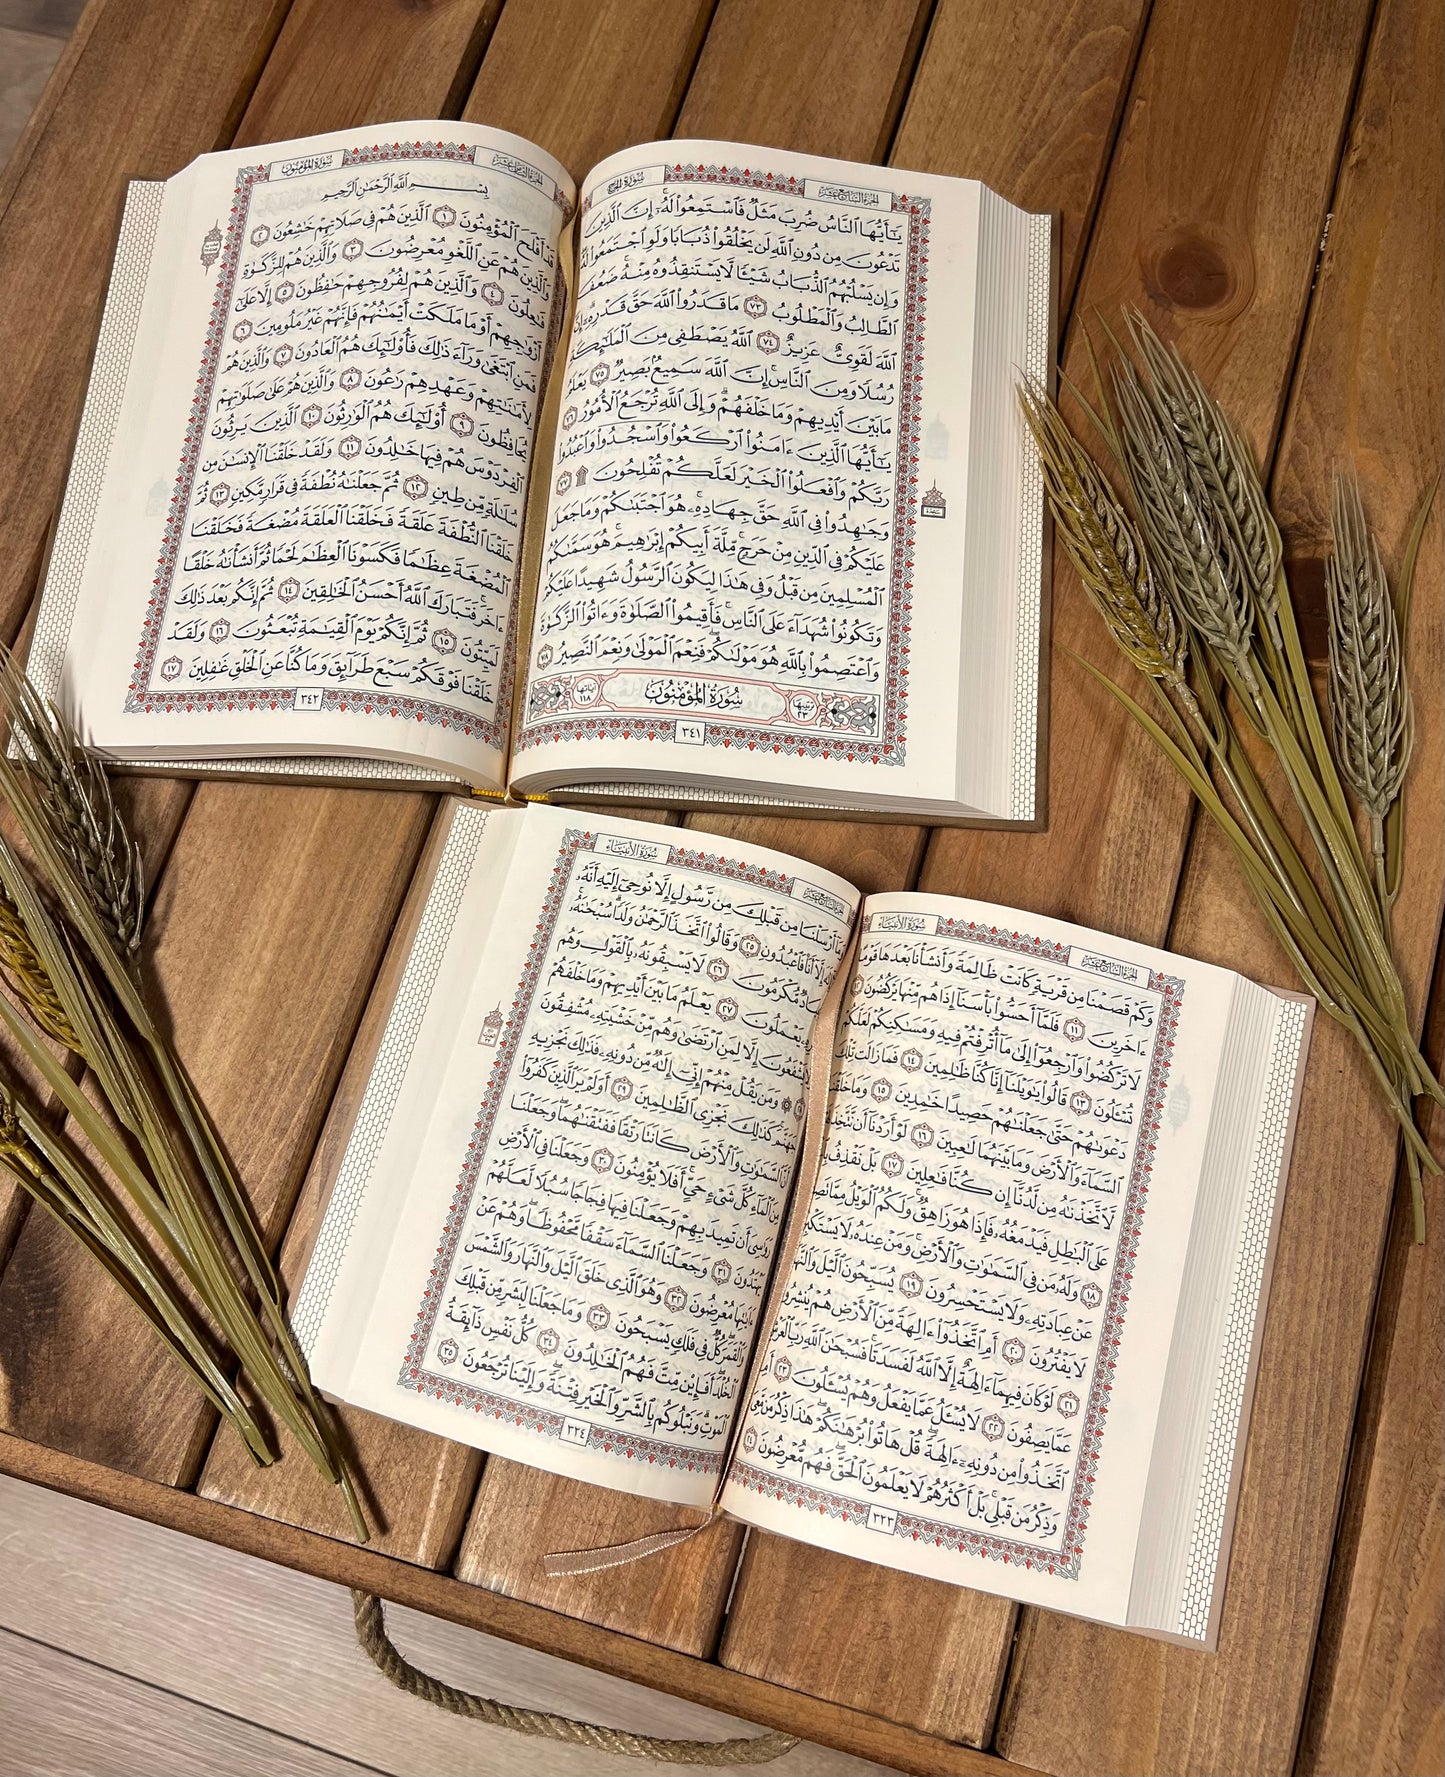 الجُزْءُ السَّابِعَ عَشَرَ سُورَةُ الحَجِّ
يَٰٓأَيُّهَا ٱلنَّاسُ ضُرِبَ مَثَلٌ فَٱسْتَمِعُوا۟ لَهُۥٓ ۚ إِنَّ ٱلَّذِينَ
تَدْعُونَ مِن دُونِ ٱللَّهِ لَن يَخْلُقُوا۟ ذُبَابًا وَلَوِ ٱجْتَمَعُوا۟ لَهُۥ ۖ
وَإِن يَسْلُبْهُمُ ٱلذُّبَابُ شَيْـًٔا لَّا يَسْتَنقِذُوهُ مِنْهُ ۚ ضَعُفَ
ٱلطَّالِبُ وَٱلْمَطْلُوبُ ٧٣ مَا قَدَرُوا۟ ٱللَّهَ حَقَّ قَدْرِهِۦٓ ۗ إِنَّ
ٱللَّهَ لَقَوِىٌّ عَزِيزٌ ٧٤ ٱللَّهُ يَصْطَفِى مِنَ ٱلْمَلَٰٓئِكَةِ
رُسُلًا وَمِنَ ٱلنَّاسِ ۚ إِنَّ ٱللَّهَ سَمِيعٌۢ بَصِيرٌ ٧٥ يَعْلَمُ
مَا بَيْنَ أَيْدِيهِمْ وَمَا خَلْفَهُمْ ۗ وَإِلَى ٱللَّهِ تُرْجَعُ ٱلْأُمُورُ ٧٦
يَٰٓأَيُّهَا ٱلَّذِينَ ءَامَنُوا۟ ٱرْكَعُوا۟ وَٱسْجُدُوا۟ وَٱعْبُدُوا۟
رَبَّكُمْ وَٱفْعَلُوا۟ ٱلْخَيْرَ لَعَلَّكُمْ تُفْلِحُونَ ۩ ٧٧
وَجَٰهِدُوا۟ فِى ٱللَّهِ حَقَّ جِهَادِهِۦ ۚ هُوَ ٱجْتَبَىٰكُمْ وَمَا جَعَلَ
عَلَيْكُمْ فِى ٱلدِّينِ مِنْ حَرَجٍ ۚ مِّلَّةَ أَبِيكُمْ إِبْرَٰهِيمَ ۚ هُوَ سَمَّىٰكُمُ
ٱلْمُسْلِمِينَ مِن قَبْلُ وَفِى هَٰذَا لِيَكُونَ ٱلرَّسُولُ شَهِيدًا عَلَيْكُمْ
وَتَكُونُوا۟ شُهَدَآءَ عَلَى ٱلنَّاسِ ۚ فَأَقِيمُوا۟ ٱلصَّلَوٰةَ وَءَاتُوا۟ ٱلزَّكَوٰةَ
وَٱعْتَصِمُوا۟ بِٱللَّهِ هُوَ مَوْلَىٰكُمْ ۖ فَنِعْمَ ٱلْمَوْلَىٰ وَنِعْمَ ٱلنَّصِيرُ ٧٨
ترتيبها ٢٣ سُورَةُ المُؤْمِنُونَ آياتها ١١٨
٣٤١
سجدة
الجُزْءُ الثَّامِنَ عَشَرَ سُورَةُ المُؤْمِنُونَ
بِسْمِ ٱللَّهِ ٱلرَّحْمَٰنِ ٱلرَّحِيمِ
قَدْ أَفْلَحَ ٱلْمُؤْمِنُونَ ١ ٱلَّذِينَ هُمْ فِى صَلَاتِهِمْ خَٰشِعُونَ ٢
وَٱلَّذِينَ هُمْ عَنِ ٱللَّغْوِ مُعْرِضُونَ ٣ وَٱلَّذِينَ هُمْ لِلزَّكَوٰةِ
فَٰعِلُونَ ٤ وَٱلَّذِينَ هُمْ لِفُرُوجِهِمْ حَٰفِظُونَ ٥ إِلَّا عَلَىٰٓ
أَزْوَٰجِهِمْ أَوْ مَا مَلَكَتْ أَيْمَٰنُهُمْ فَإِنَّهُمْ غَيْرُ مَلُومِينَ ٦
فَمَنِ ٱبْتَغَىٰ وَرَآءَ ذَٰلِكَ فَأُو۟لَٰٓئِكَ هُمُ ٱلْعَادُونَ ٧ وَٱلَّذِينَ هُمْ
لِأَمَٰنَٰتِهِمْ وَعَهْدِهِمْ رَٰعُونَ ٨ وَٱلَّذِينَ هُمْ عَلَىٰ صَلَوَٰتِهِمْ
يُحَافِظُونَ ٩ أُو۟لَٰٓئِكَ هُمُ ٱلْوَٰرِثُونَ ١٠ ٱلَّذِينَ يَرِثُونَ
ٱلْفِرْدَوْسَ هُمْ فِيهَا خَٰلِدُونَ ١١ وَلَقَدْ خَلَقْنَا ٱلْإِنسَٰنَ مِن
سُلَٰلَةٍ مِّن طِينٍ ١٢ ثُمَّ جَعَلْنَٰهُ نُطْفَةً فِى قَرَارٍ مَّكِينٍ ١٣ ثُمَّ
خَلَقْنَا ٱلنُّطْفَةَ عَلَقَةً فَخَلَقْنَا ٱلْعَلَقَةَ مُضْغَةً فَخَلَقْنَا
ٱلْمُضْغَةَ عِظَٰمًا فَكَسَوْنَا ٱلْعِظَٰمَ لَحْمًا ثُمَّ أَنشَأْنَٰهُ خَلْقًا
ءَاخَرَ ۚ فَتَبَارَكَ ٱللَّهُ أَحْسَنُ ٱلْخَٰلِقِينَ ١٤ ثُمَّ إِنَّكُم بَعْدَ ذَٰلِكَ
لَمَيِّتُونَ ١٥ ثُمَّ إِنَّكُمْ يَوْمَ ٱلْقِيَٰمَةِ تُبْعَثُونَ ١٦ وَلَقَدْ
خَلَقْنَا فَوْقَكُمْ سَبْعَ طَرَآئِقَ وَمَا كُنَّا عَنِ ٱلْخَلْقِ غَٰفِلِينَ ١٧
٣٤٢
الجُزْءُ السَّابِعَ عَشَرَ سُورَةُ الأَنبِيَاءِ
وَكَمْ قَصَمْنَا مِن قَرْيَةٍ كَانَتْ ظَالِمَةً وَأَنشَأْنَا بَعْدَهَا قَوْمًا
ءَاخَرِينَ ١١ فَلَمَّآ أَحَسُّوا۟ بَأْسَنَآ إِذَا هُم مِّنْهَا يَرْكُضُونَ
لَا تَرْكُضُوا۟ وَٱرْجِعُوٓا۟ إِلَىٰ مَآ أُتْرِفْتُمْ فِيهِ وَمَسَٰكِنِكُمْ لَعَلَّكُمْ
تُسْـَٔلُونَ ١٣ قَالُوا۟ يَٰوَيْلَنَآ إِنَّا كُنَّا ظَٰلِمِينَ ١٤ فَمَا زَالَت تِّلْكَ
دَعْوَىٰهُمْ حَتَّىٰ جَعَلْنَٰهُمْ حَصِيدًا خَٰمِدِينَ ١٥ وَمَا خَلَقْنَا
ٱلسَّمَآءَ وَٱلْأَرْضَ وَمَا بَيْنَهُمَا لَٰعِبِينَ ١٦ لَوْ أَرَدْنَآ أَن نَّتَّخِذَ
لَّٱتَّخَذْنَٰهُ مِن لَّدُنَّآ إِن كُنَّا فَٰعِلِينَ ١٧ بَلْ نَقْذِفُ
عَلَى ٱلْبَٰطِلِ فَيَدْمَغُهُۥ فَإِذَا هُوَ زَاهِقٌ ۚ وَلَكُمُ ٱلْوَيْلُ مِمَّا
١٨ وَلَهُۥ مَن فِى ٱلسَّمَٰوَٰتِ وَٱلْأَرْضِ ۚ وَمَنْ عِندَهُۥ لَا
عَنْ عِبَادَتِهِۦ وَلَا يَسْتَحْسِرُونَ ١٩ يُسَبِّحُونَ ٱلَّيْلَ
لَا يَفْتُرُونَ ٢٠ أَمِ ٱتَّخَذُوٓا۟ ءَالِهَةً مِّنَ ٱلْأَرْضِ هُمْ يُنشِرُونَ
٢١ لَوْ كَانَ فِيهِمَآ ءَالِهَةٌ إِلَّا ٱللَّهُ لَفَسَدَتَا ۚ فَسُبْحَٰنَ ٱللَّهِ رَبِّ ٱلْعَرْشِ
عَمَّا يَصِفُونَ ٢٢ لَا يُسْـَٔلُ عَمَّا يَفْعَلُ وَهُمْ يُسْـَٔلُونَ ٢٣ أَمِ
ٱتَّخَذُوا۟ مِن دُونِهِۦٓ ءَالِهَةً ۖ قُلْ هَاتُوا۟ بُرْهَٰنَكُمْ ۖ هَٰذَا ذِكْرُ مَن مَّعِىَ
وَذِكْرُ مَن قَبْلِى ۗ بَلْ أَكْثَرُهُمْ لَا يَعْلَمُونَ ٱلْحَقَّ ۖ فَهُم مُّعْرِضُونَ ٢٤
٣٢٣
الجُزْءُ السَّابِعَ عَشَرَ سُورَةُ الأَنبِيَاءِ
أَرْسَلْنَا مِن قَبْلِكَ مِن رَّسُولٍ إِلَّا نُوحِىٓ إِلَيْهِ أَنَّهُۥ
إِلَّآ أَنَا۠ فَٱعْبُدُونِ ٢٥ وَقَالُوا۟ ٱتَّخَذَ ٱلرَّحْمَٰنُ وَلَدًا ۗ سُبْحَٰنَهُۥ ۚ
مُّكْرَمُونَ ٢٦ لَا يَسْبِقُونَهُۥ بِٱلْقَوْلِ وَهُم
يَعْمَلُونَ ٢٧ يَعْلَمُ مَا بَيْنَ أَيْدِيهِمْ وَمَا خَلْفَهُمْ
يَشْفَعُونَ إِلَّا لِمَنِ ٱرْتَضَىٰ وَهُم مِّنْ خَشْيَتِهِۦ مُشْفِقُونَ
۞ وَمَن يَقُلْ مِنْهُمْ إِنِّىٓ إِلَٰهٌ مِّن دُونِهِۦ فَذَٰلِكَ نَجْزِيهِ
جَهَنَّمَ ۚ كَذَٰلِكَ نَجْزِى ٱلظَّٰلِمِينَ ٢٩ أَوَلَمْ يَرَ ٱلَّذِينَ كَفَرُوٓا۟
أَنَّ ٱلسَّمَٰوَٰتِ وَٱلْأَرْضَ كَانَتَا رَتْقًا فَفَتَقْنَٰهُمَا ۖ وَجَعَلْنَا
مِنَ ٱلْمَآءِ كُلَّ شَىْءٍ حَىٍّ ۖ أَفَلَا يُؤْمِنُونَ ٣٠ وَجَعَلْنَا فِى ٱلْأَرْضِ
رَوَٰسِىَ أَن تَمِيدَ بِهِمْ وَجَعَلْنَا فِيهَا فِجَاجًا سُبُلًا لَّعَلَّهُمْ
يَهْتَدُونَ ٣١ وَجَعَلْنَا ٱلسَّمَآءَ سَقْفًا مَّحْفُوظًا ۖ وَهُمْ عَنْ
ءَايَٰتِهَا مُعْرِضُونَ ٣٢ وَهُوَ ٱلَّذِى خَلَقَ ٱلَّيْلَ وَٱلنَّهَارَ وَٱلشَّمْسَ
وَٱلْقَمَرَ ۖ كُلٌّ فِى فَلَكٍ يَسْبَحُونَ ٣٣ وَمَا جَعَلْنَا لِبَشَرٍ مِّن قَبْلِكَ
ٱلْخُلْدَ ۖ أَفَإِي۟ن مِّتَّ فَهُمُ ٱلْخَٰلِدُونَ ٣٤ كُلُّ نَفْسٍ ذَآئِقَةُ
ٱلْمَوْتِ ۗ وَنَبْلُوكُم بِٱلشَّرِّ وَٱلْخَيْرِ فِتْنَةً ۖ وَإِلَيْنَا تُرْجَعُونَ ٣٥
٣٢٤